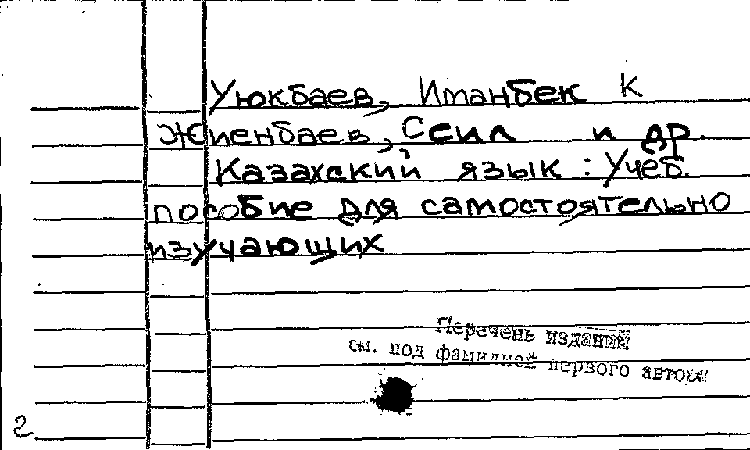 Уюкбаев, Иманбек К
Жиенбаев, Ссил и др.
Казахский язык : Учеб.
пособие для самостоятельно
изучающих
Перечень изданий
см. под фамилией первого автора
2